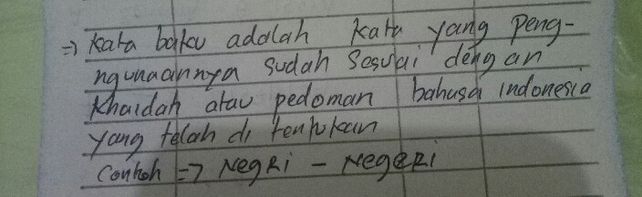 => Kata baku adalah kata yang peng-
ngunaannya sudah sesuai dengan
Khaidah atau pedoman bahusa indonesia
yang telah di tentukan
Contoh => NegRi - NegeRi